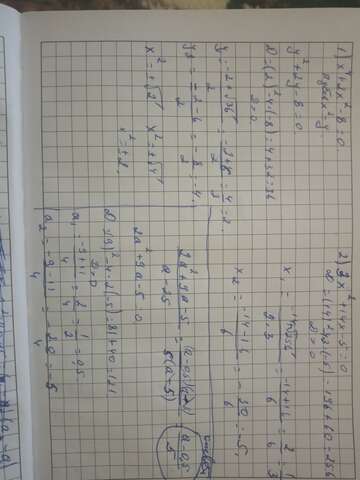 1) x⁴+2x²-8=0.
x²=y.
y²+2y-8=0.
D=(2)²-4·(-8)=4+32=36
D>0.
y₁=(-2+√36)/2=(-2+6)/2=4/2=2.
y₂=(-2-6)/2=-8/2=-4.
x²=±√2  x²=±√4
x²=±2.
2) 3x²+14x-5=0
D=(14)²-4·3·(-5)=196+60=256
D>0
x₁=(-14+√256)/(2·3)=(-14+16)/6=2/6=1/3
x₂=(-14-16)/6=-30/6=-5.
(2a²+9a-5)/(a²-25)=
2a²+9a-5=0
D=(9)²-4·2·(-5)=81+40=121
D>0
a₁=(-9+11)/4=2/4=1/2=0,5
a₂=(-9-11)/4=-20/4=-5